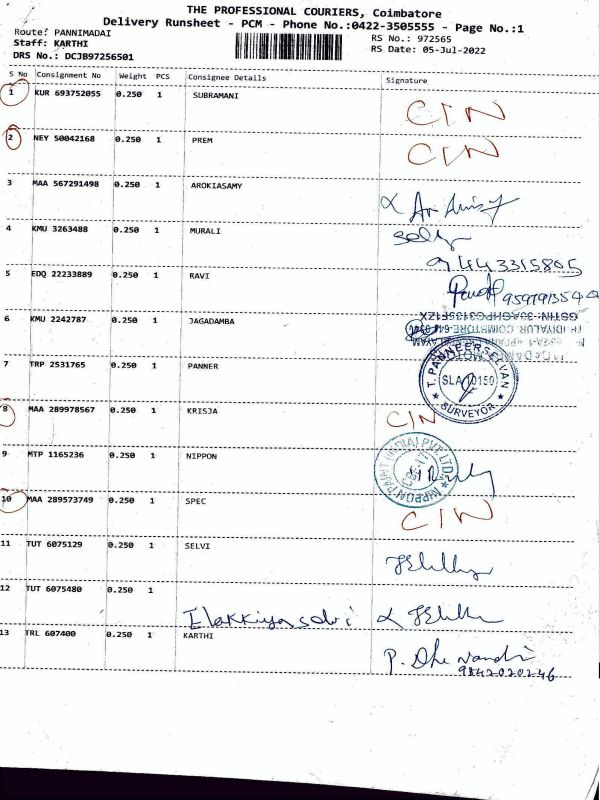 THE PROFESSIONAL COURIERS, Coimbatore
Delivery Runsheet - PCM - Phone No.:0422-3505555 - Page No.:1
Route: PANNIMADAI
RS No.: 972565
Staff: KARTHI
RS Date: 05-Jul-2022
DRS No.: DCJB97256501
S No Consignment No Weight PCS Consignee Details Signature
1 KUR 693752055 0.250 1 SUBRAMANI CIN
2 NEY 50042168 0.250 1 PREM CIN
3 MAA 567291498 0.250 1 AROKIASAMY
4 KMU 3263488 0.250 1 MURALI
5 EDQ 22233889 0.250 1 RAVI
6 KMU 2242787 0.250 1 JAGADAMBA
7 TRP 2531765 0.250 1 PANNER
T. PANNEERSELVAN
SLA 10150
SURVEYOR
8 MAA 289978567 0.250 1 KRISJA CIN
9 MTP 1165236 0.250 1 NIPPON
NIPPON PAINT (INDIA) PVT. LTD.
10 MAA 289573749 0.250 1 SPEC CIN
11 TUT 6075129 0.250 1 SELVI
12 TUT 6075480 0.250 1
Elakkiya selvi
13 TRL 607400 0.250 1 KARTHI
9842020246